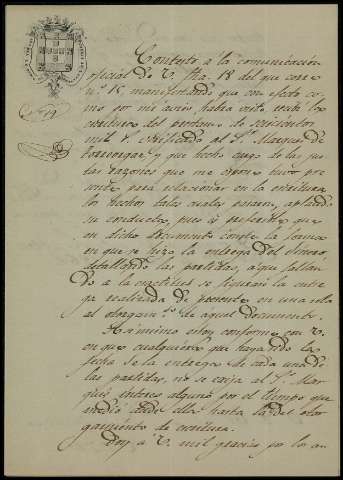 Contesto a la comunicacion
oficial de V. fha. 18 del que corre
nº 15, manifestando que con efecto co-
mo por mi aviso habrá visto recibí la
escritura del préstamo de seiscientos
mil rs. verificado al Sr. Marques de
y que hecho cargo de las jus-
tas razones que me espone tuvo pre-
sente para relacionar en la escritura
los hechos tales cuales pasaron, aplaudo
su conducta, pues es preferible que
en dicho documento conste la forma
en que se hizo la entrega del dinero,
detallando las partidas, á que faltan-
do a la exactitud se figurase la entre-
ga realizada de presente en una sola
al otorgamto. de aquel documento.
Asimismo estoy conforme con V.
en que cualquiera que haya sido la
fecha de la entrega de cada una de
las partidas, no se exija al Sr. Mar-
qués interes alguno por el tiempo que
medió desde ella hasta la del otor-
gamiento de escritura.
Doy a V. mil gracias por los